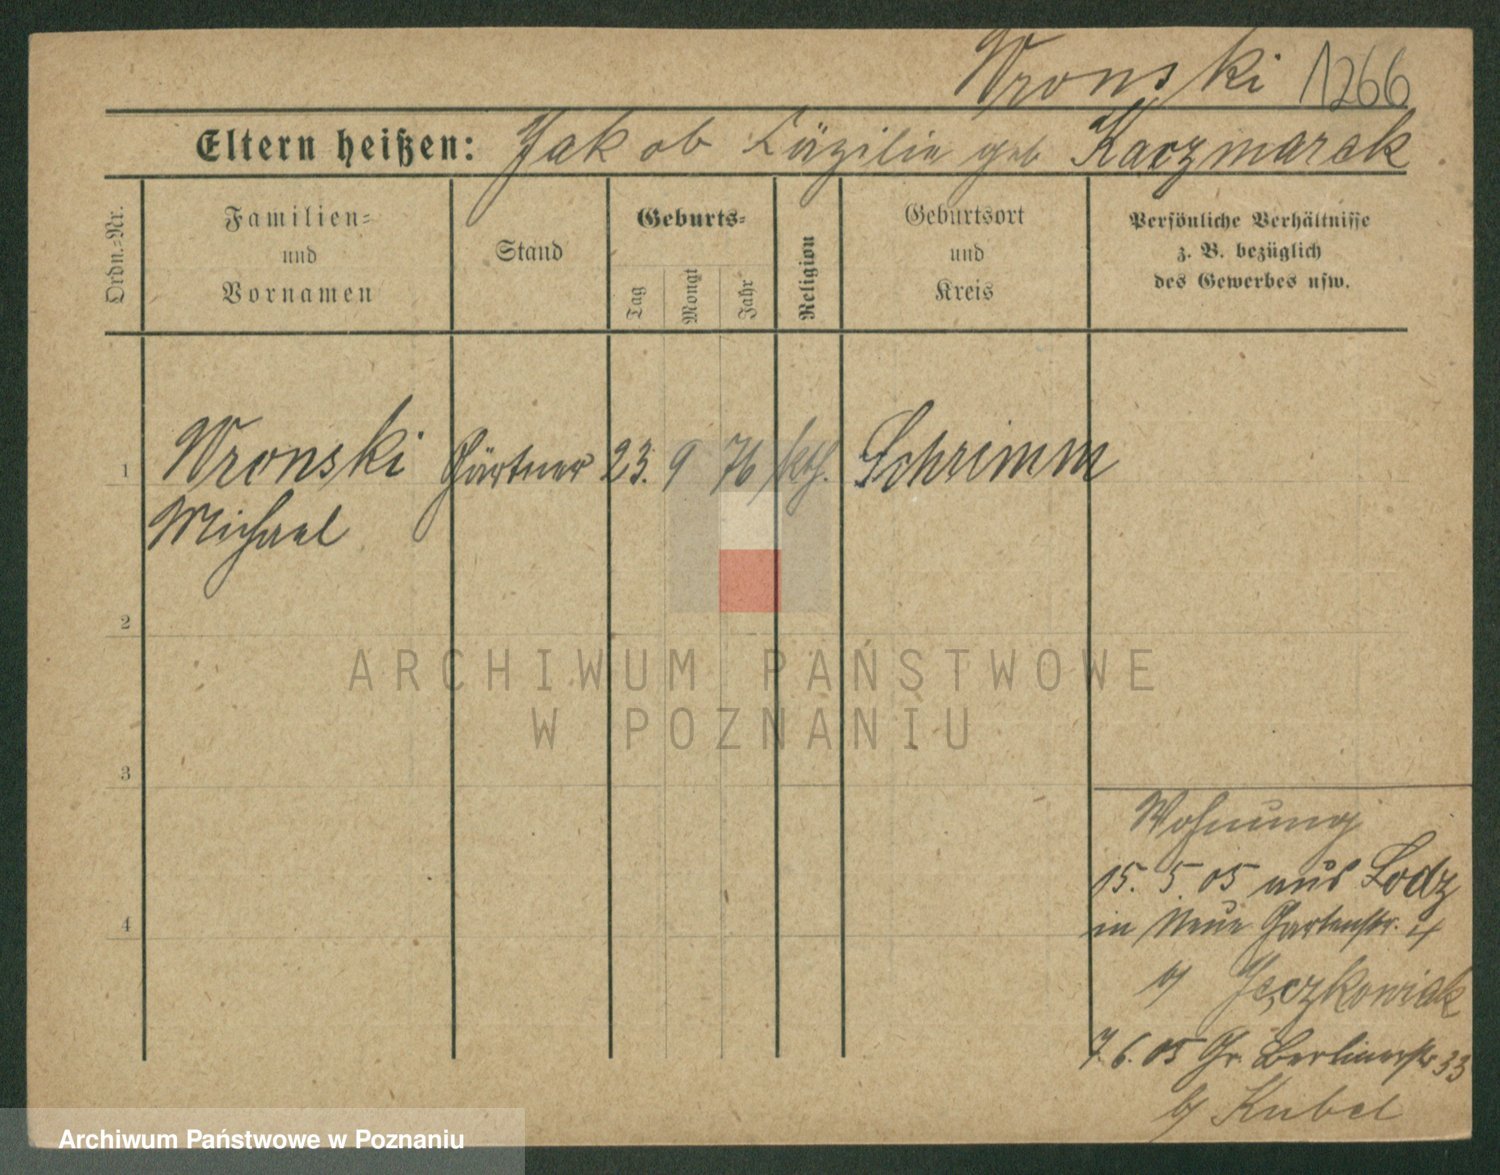 Wronski 1266
Eltern heißen: Jakob Zäzilia geb Kaczmarek
Ordn.=Nr.
Familien=
und
Vornamen
Stand
Geburts=
Tag
Monat
Jahr
Religion
Geburtsort
und
Kreis
Persönliche Verhältnisse
z. B. bezüglich
des Gewerbes usw.
1 Wronski Gärtner 23. 9 76 kth. Schrimm
Michael
2
3
4
Wohnung
15. 5. 05 aus Lodz
in Neue Gartenstr. 4
b/ Jęczkowiak
7. 6. 05 Gr. Berlinerstr 33
b/ Kubel
ARCHIWUM PAŃSTWOWE
W POZNANIU
Archiwum Państwowe w Poznaniu